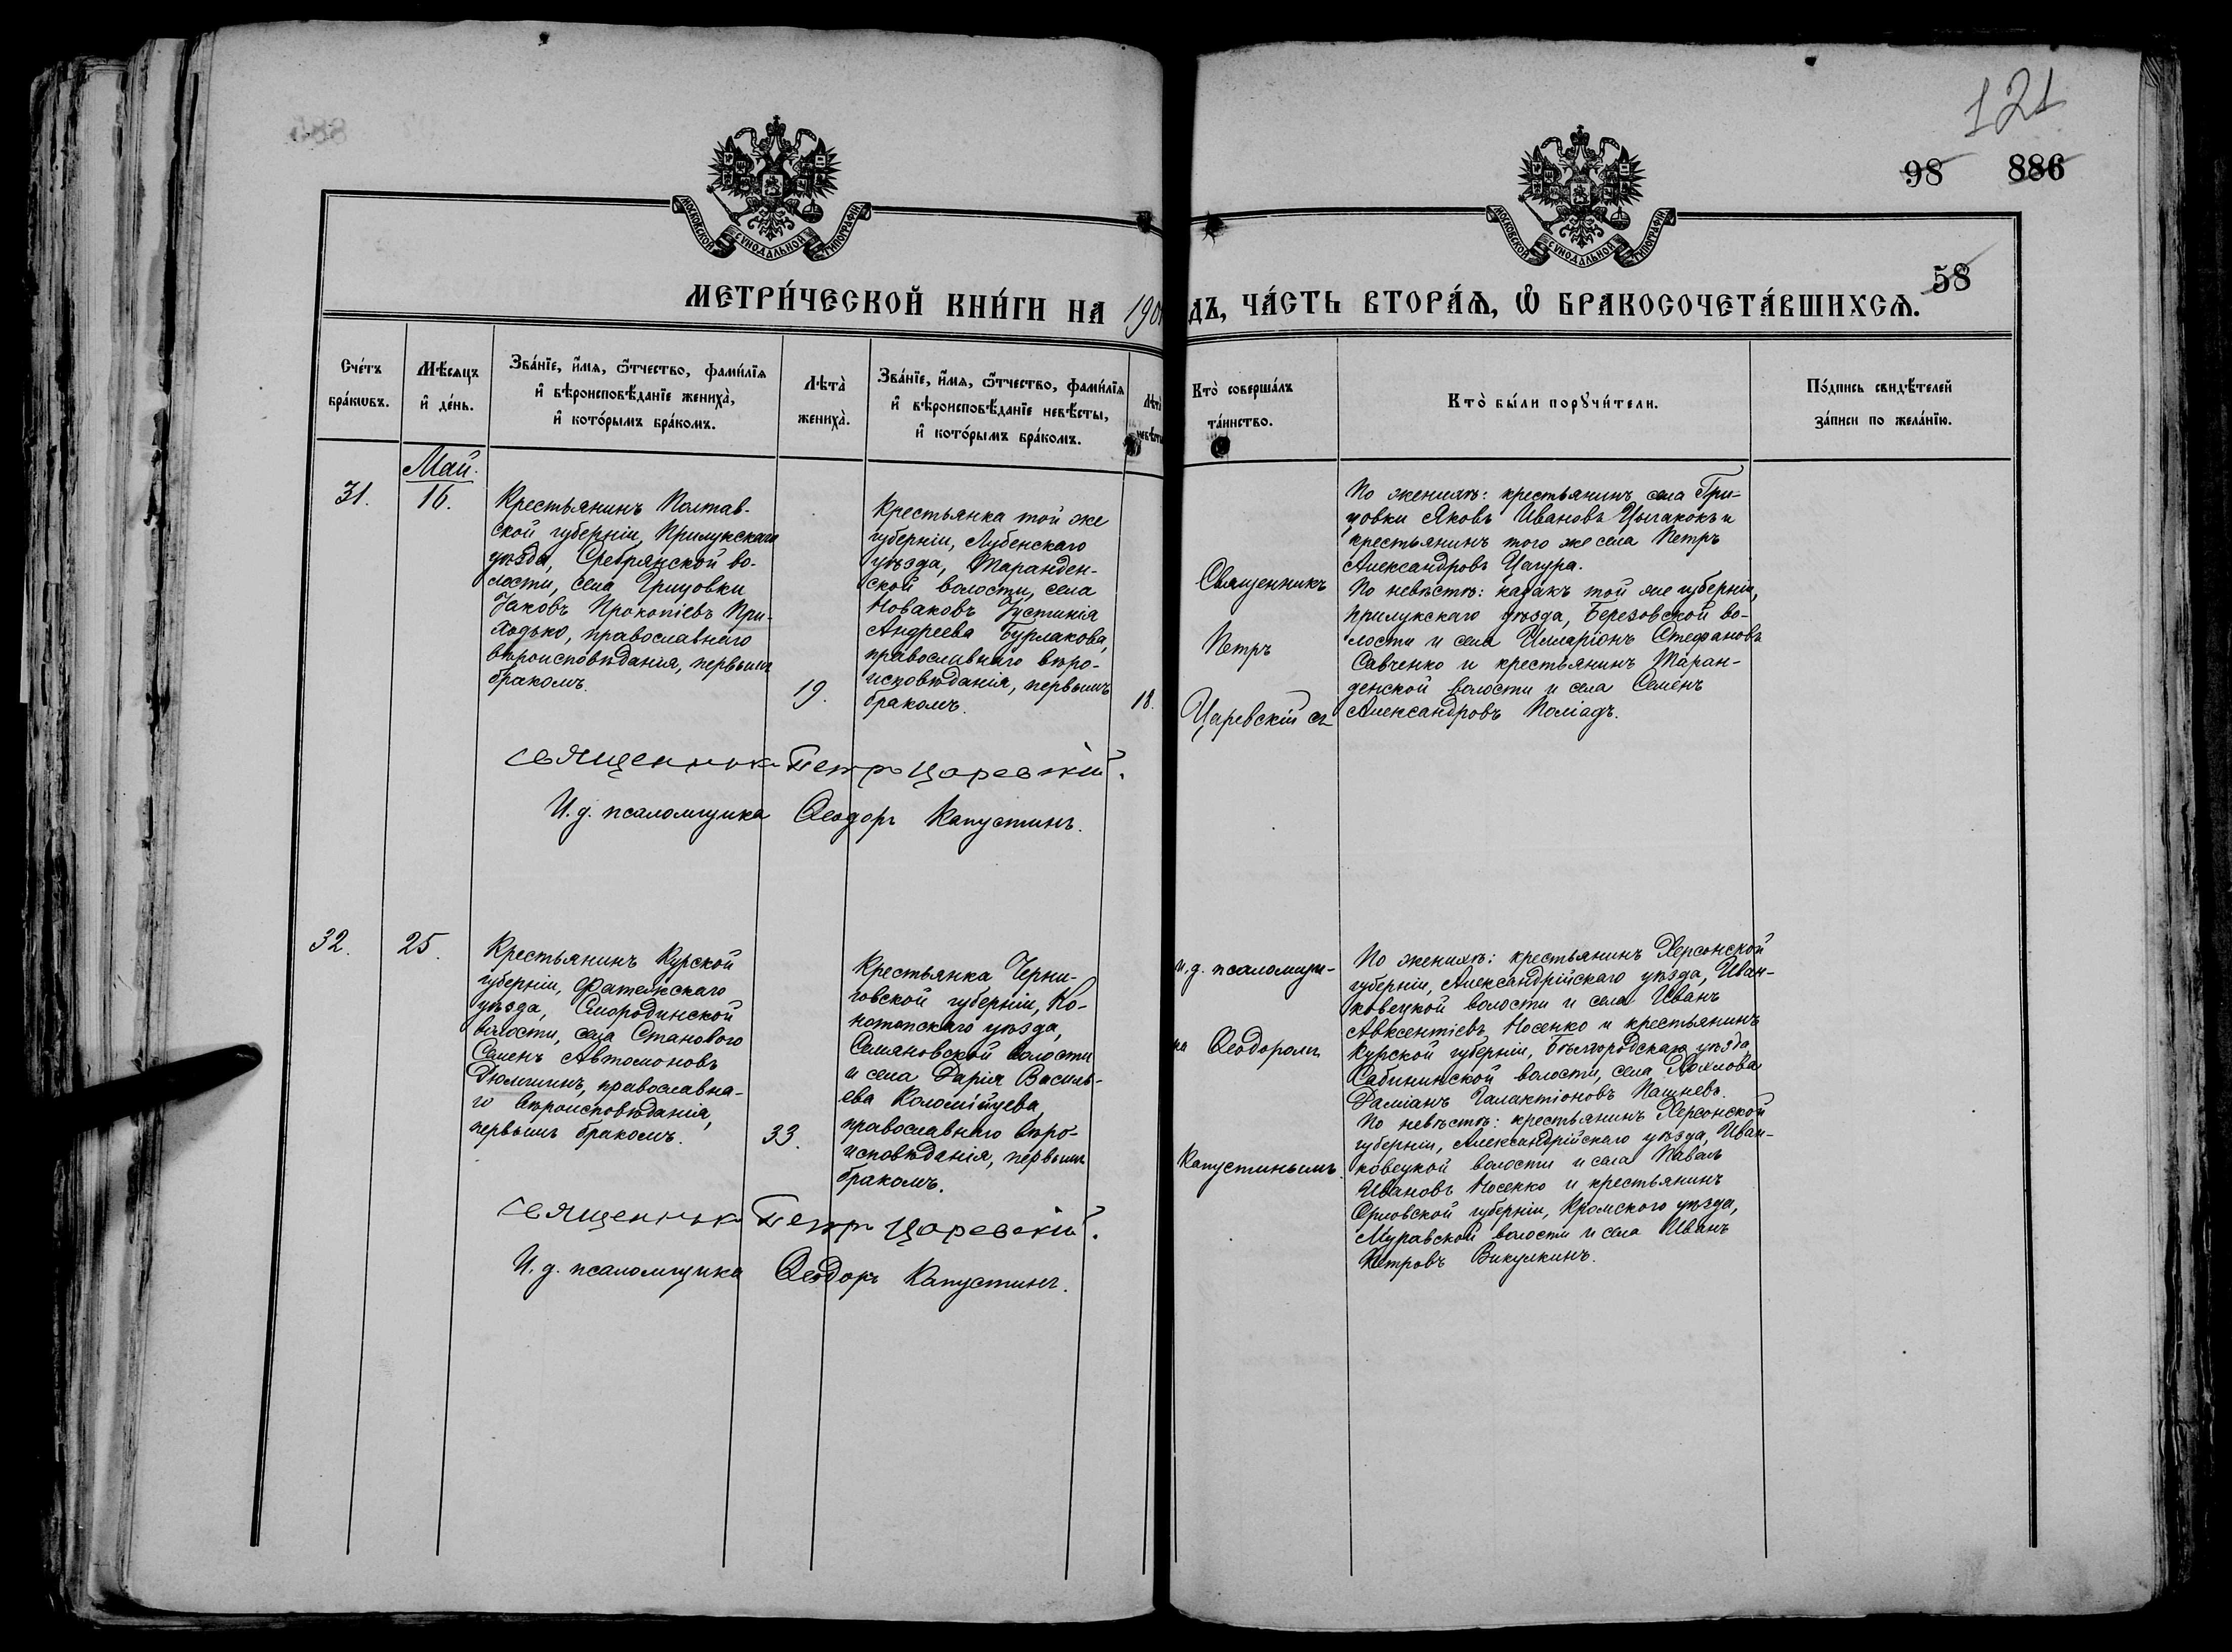 121
98 886
58
МОСКОВСКОЙ СѴНОДАЛЬНОЙ ТИПОГРАФІИ
МОСКОВСКОЙ СѴНОДАЛЬНОЙ ТИПОГРАФІИ
МЕТРИ́ЧЕСКОЙ КНИ́ГИ НА 190
ДЪ, ЧА́СТЬ ВТОРА́Ѧ, Ѡ҆ БРАКОСОЧЕТА́ВШИХСѦ.
Сче́тъ
бра́кѡвъ.
Мѣ́сяцъ
и҆ де́нь.
Зва́нїе, и҆́мѧ, ѻ҆́тчество, фами́лїѧ
и҆ вѣроисповѣ́данїе жениха̀,
и҆ кото́рымъ бра́комъ.
Лѣта̀
жениха̀.
Зва́нїе, и҆́мѧ, ѻ҆́тчество, фами́лїѧ
и҆ вѣроисповѣ́данїе невѣ́сты,
и҆ кото́рымъ бра́комъ.
Лѣта̀
невѣсты
Кто̀ соверша́лъ
та́инство.
Кто̀ бы́ли порꙋчи́тели.
По́дпись свидѣ́телей
за́писи по жела́нїю.
Май.
31.
16.
Крестьянинъ Полтав-
ской губерніи, Прилукскаго
уѣзда, Сребрянской во-
лости, села Грицовки
Іаковъ Прокопіевъ При-
ходько, православнаго
вѣроисповѣданія, первымъ
бракомъ.
19.
Крестьянка той же
губерніи, Лубенскаго
уѣзда, Таранден-
ской волости, села
Новаковъ Іустинія
Андреева Бурлакова,
православнаго вѣро-
исповѣданія, первымъ
бракомъ.
18.
Священникъ
Петръ
Царевскій съ
По женихѣ: крестьянинъ села Гри-
цовки Яковъ Ивановъ и
крестьянинъ того же села Петръ
Александровъ Цагура.
По невѣстѣ: казакъ той же губерніи,
Прилукскаго уѣзда, Березовской во-
лости и села Илларіонъ Стефановъ
Савченко и крестьянинъ Таран-
денской волости и села Семенъ
Александровъ Поліадъ.
Священникъ Петръ Царевскій.
И. д. псаломщика Ѳеодоръ Капустинъ.
32.
25.
Крестьянинъ Курской
губерніи, Фатежскаго
уѣзда, Смородинской
волости, села Становаго
Семенъ Автомоновъ
Дюмшинъ, православна-
го вѣроисповѣданія,
первымъ бракомъ.
33.
Крестьянка Черни-
говской губерніи, Ко-
нотопскаго уѣзда,
Семяновской волости
и села Дарія Василь-
ева Коломійцева,
православнаго вѣро-
исповѣданія, первымъ
бракомъ.
и. д. псаломщи-
ка Ѳеодоромъ
Капустинымъ.
По женихѣ: крестьянинъ Херсонской
губерніи, Александрійскаго уѣзда, Иван-
ковецкой волости и села Иванъ
Авксентіевъ Носенко и крестьянинъ
Курской губерніи, Бѣлгородскаго уѣзда
Сабининской волости, села
Даміанъ Галактіоновъ Пашневъ.
По невѣстѣ: крестьянинъ Херсонской
губерніи, Александрійскаго уѣзда, Иван-
ковецкой волости и села Павелъ
Ивановъ Носенко и крестьянинъ
Орловской губерніи, Кромскаго уѣзда,
Муравской волости и села Иванъ
Петровъ Викулкинъ.
Священникъ Петръ Царевскій.
И. д. псаломщика Ѳеодоръ Капустинъ.